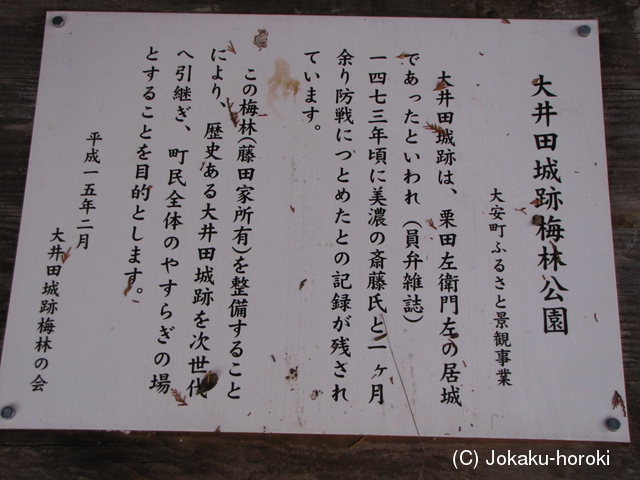 大井田城跡梅林公園
大安町ふるさと景観事業
大井田城跡は、栗田左衛門左の居城
であったといわれ（員弁雑誌）
一四七三年頃に美濃の斎藤氏と一ヶ月
余り防戦につとめたとの記録が残され
ています。
この梅林（藤田家所有）を整備すること
により、歴史ある大井田城跡を次世代
へ引継ぎ、町民全体のやすらぎの場
とすることを目的とします。
平成一五年二月
大井田城跡梅林の会
(C) Jokaku-horoki